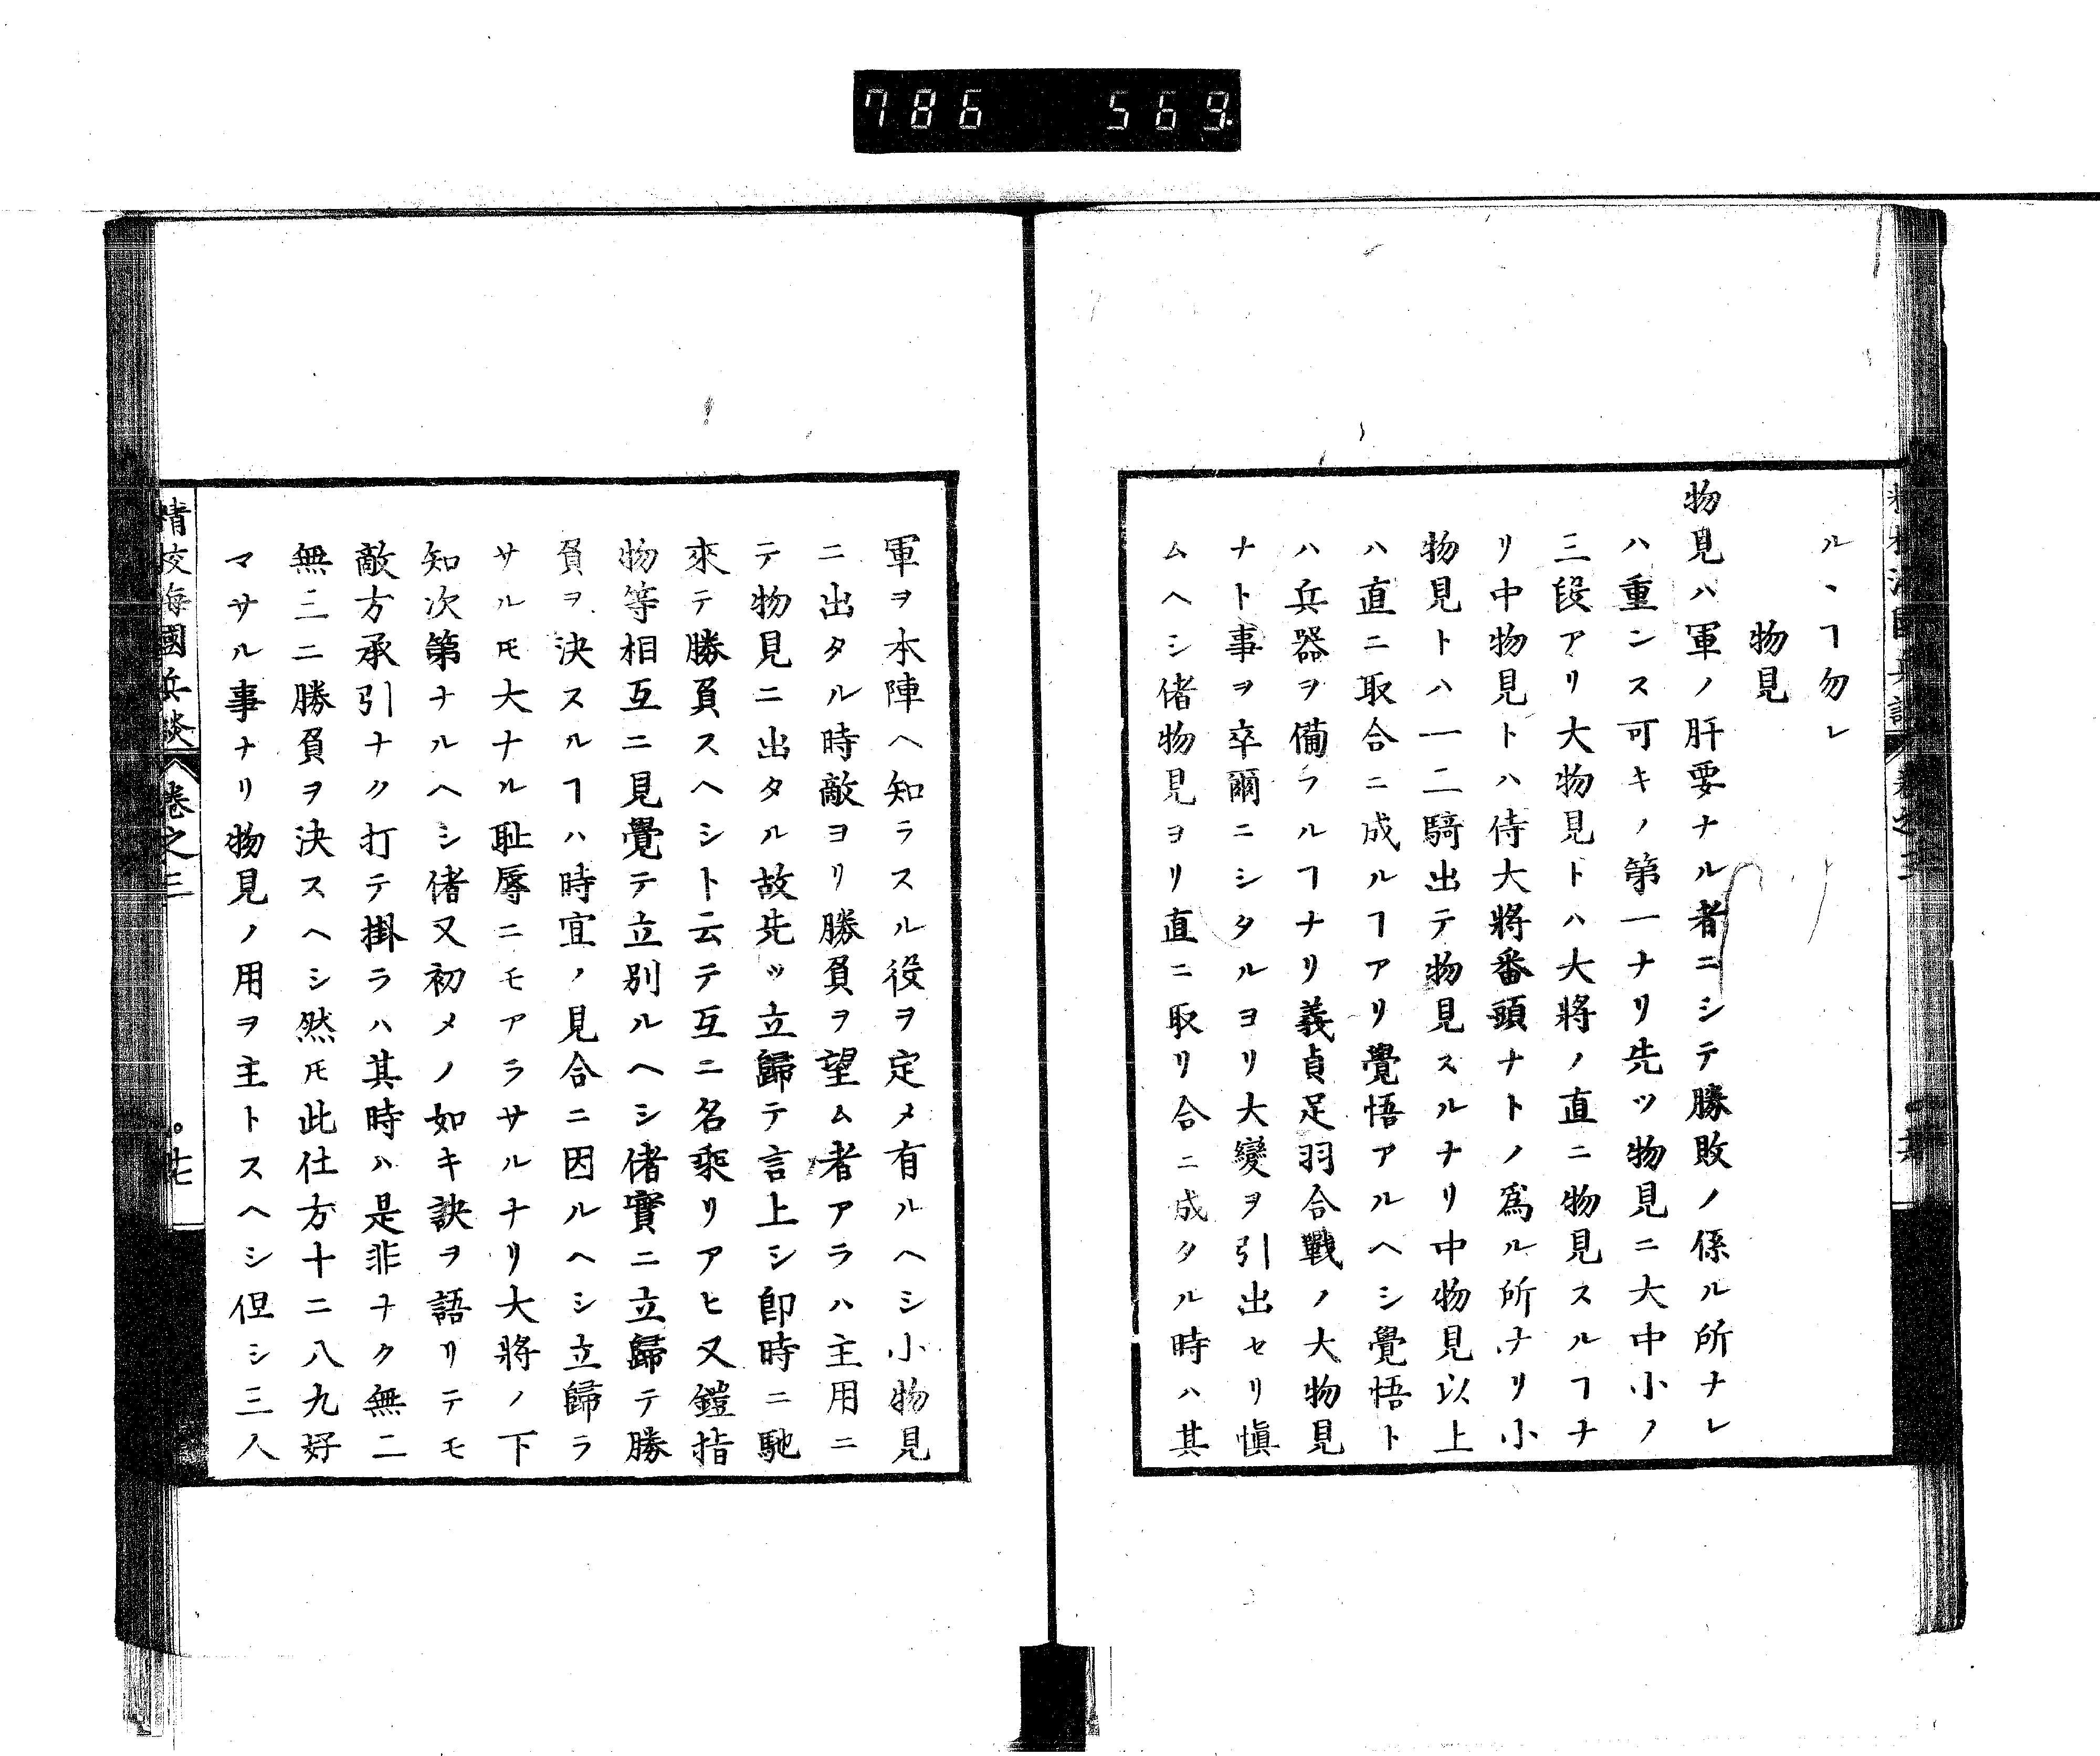 786 569
ルヽヿ勿レ
物見
物見ハ軍ノ肝要ナル者ニシテ勝敗ノ係ル所ナレ
ハ重ンス可キノ第一ナリ先ツ物見ニ大中小ノ
三段アリ大物見トハ大將ノ直ニ物見スルヿナ
リ中物見トハ侍大將番頭ナトノ爲ル所ナリ小
物見トハ一二騎出テ物見スルナリ中物見以上
ハ直ニ取合ニ成ルヿアリ覺悟アルヘシ覺悟ト
ハ兵器ヲ備ラルヿナリ義貞足羽合戰ノ大物見
ナト事ヲ卒爾ニシタルヨリ大變ヲ引出セリ愼
ムヘシ偖物見ヨリ直ニ取リ合ニ成タル時ハ其
軍ヲ本陣ヘ知ラスル役ヲ定メ有ルヘシ小物見
ニ出タル時敵ヨリ勝負ヲ望ム者アラハ主用ニ
テ物見ニ出タル故先ツ立歸テ言上シ卽時ニ馳
來テ勝負スヘシト云テ互ニ名乘リアヒ又鎧指
物等相互ニ見覺テ立別ルヘシ偖實ニ立歸テ勝
負ヲ決スルヿハ時宜ノ見合ニ因ルヘシ立歸ラ
サルモ大ナル耻辱ニモアラサルナリ大將ノ下
知次第ナルヘシ偖又初メノ如キ訣ヲ語リテモ
敵方承引ナク打テ掛ラハ其時ハ是非ナク無二
無三ニ勝負ヲ決スヘシ然𪜈此仕方十ニ八九好
マサル事ナリ物見ノ用ヲ主トスヘシ但シ三人
精校海國兵談 卷之三 。廿七